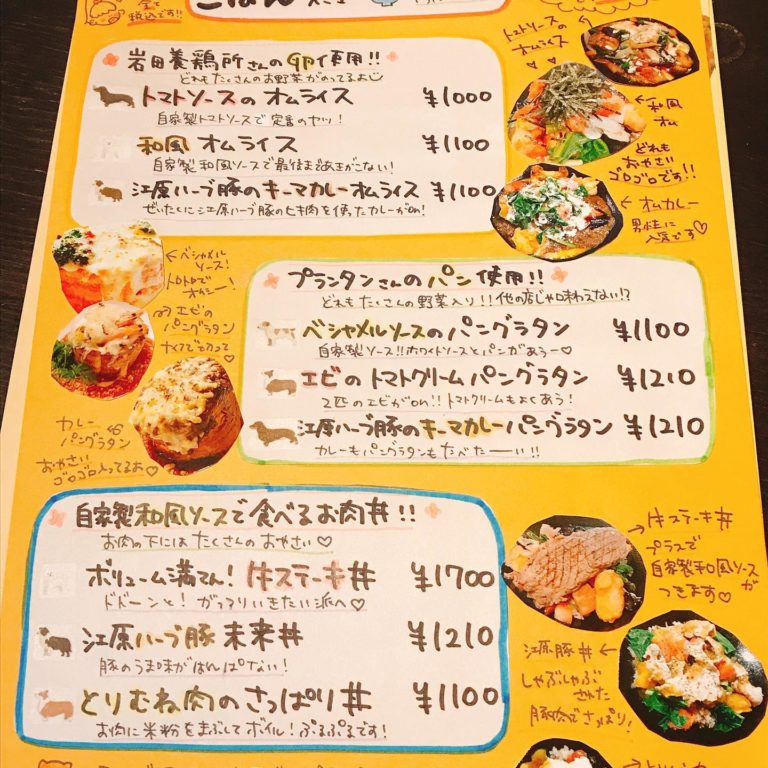 税込です!!
ごはん
岩田養鶏所さんの卵使用!!
どれもたくさんのお野菜がのってるよ
トマトソースのオムライス ¥1000
自家製トマトソースで定番のヤツ!
和風オムライス ¥1100
自家製和風ソースで最後まであきがこない!
江原ハーブ豚のキーマカレーオムライス ¥1100
ぜいたくに江原ハーブ豚のヒキ肉を使ったカレーがon!
トマトソースの
オムライス
和風
オム
どれも
おやさい
ゴロゴロです!!
オムカレー
男性に
人気です♡
ベシャメル
ソース!
トロトロで
オイシー!
エビの
パングラタン
ナイフで切って
カレー
パングラタン
おやさい
ゴロゴロ入ってるよ♡
プランタンさんのパン使用!!
どれもたくさんの野菜入り!!他の店じゃ味わえない!?
ベシャメルソースのパングラタン ¥1100
自家製ソース!!ホワイトソースとパンがあうー♡
エビのトマトクリームパングラタン ¥1210
2匹のエビがon!!トマトクリームもよくあう!
江原ハーブ豚のキーマカレーパングラタン ¥1210
カレーもパングラタンもたべたーい!!
自家製和風ソースで食べるお肉丼!!
お肉の下にはたくさんのおやさい♡
ボリューム満てん!牛ステーキ丼 ¥1700
ドドーンと!がっつりいきたい派へ♡
江原ハーブ豚未来丼 ¥1210
豚のうま味がはんぱない!
とりむね肉のさっぱり丼 ¥1100
お肉に米粉をまぶしてボイル!ぷるぷるです!
牛ステーキ丼
プラスで
自家製和風ソースが
つきます♡
江原豚丼
しゃぶしゃぶ
された
豚肉でさっぱり!